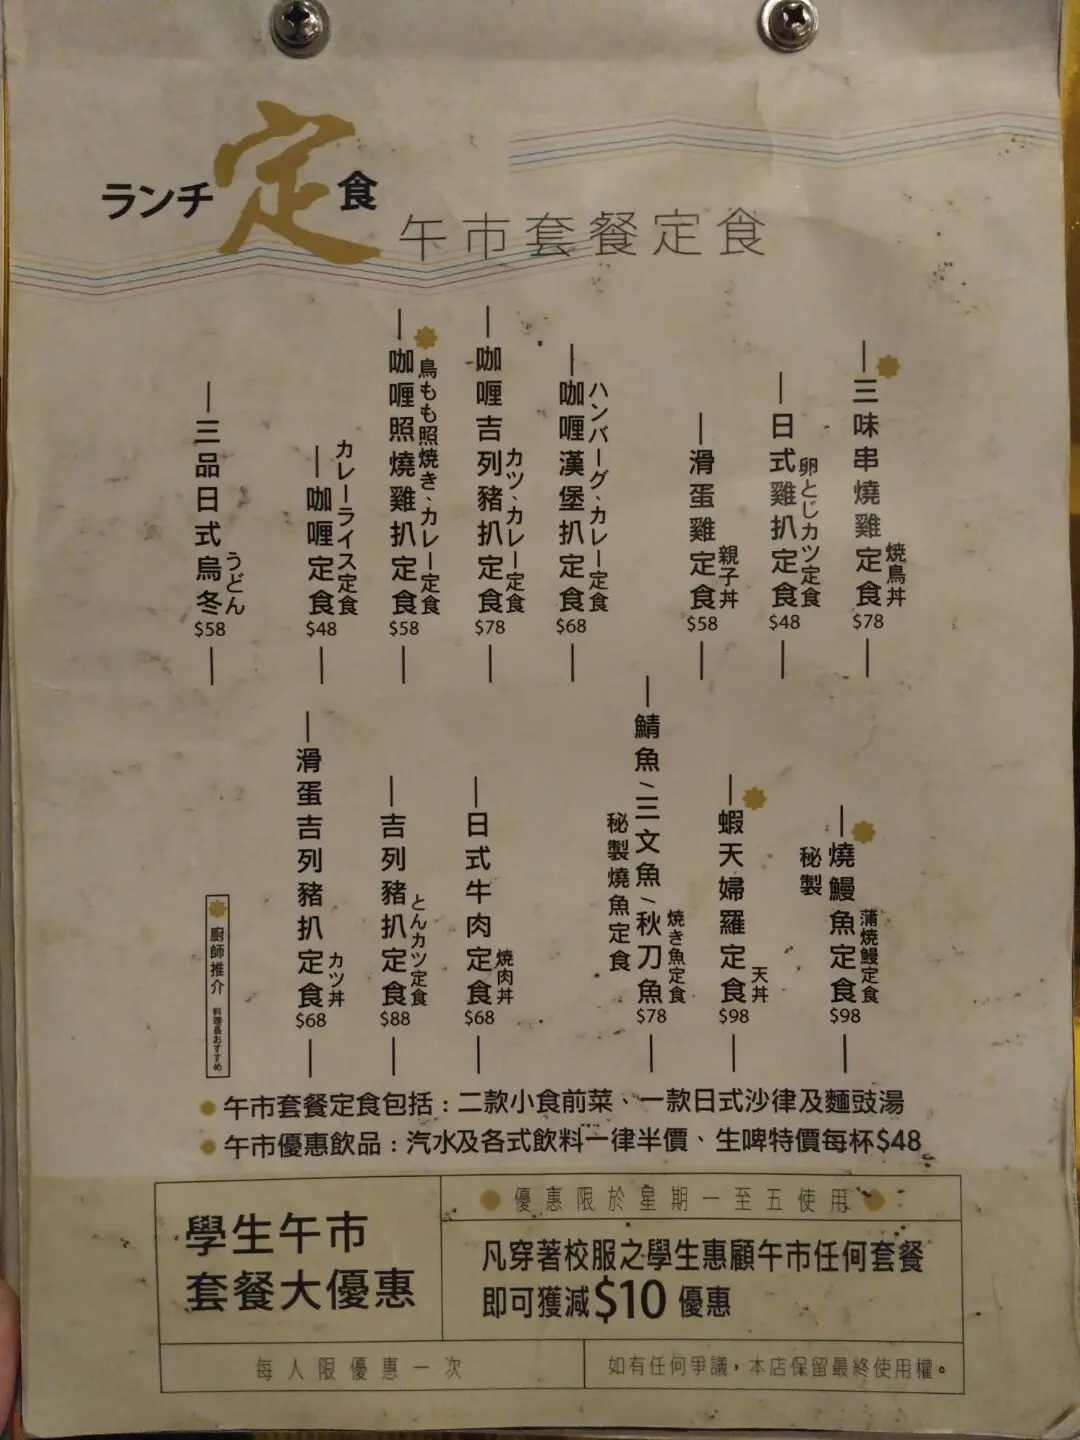 ランチ定食
午市套餐定食
三味串燒雞定食
焼鳥丼
$78
日式雞扒定食
卵とじカツ定食
$48
滑蛋雞定食
親子丼
$58
咖喱漢堡扒定食
ハンバーグ、カレー定食
$68
咖喱吉列豬扒定食
カツ、カレー定食
$78
咖喱照燒雞扒定食
鳥もも照焼き、カレー定食
$58
咖喱定食
カレーライス定食
$48
三品日式烏冬
うどん
$58
秘製
燒鰻魚定食
蒲焼鰻定食
$98
蝦天婦羅定食
天丼
$98
鯖魚、三文魚、秋刀魚
秘製燒魚定食
焼き魚定食
$78
日式牛肉定食
焼肉丼
$68
吉列豬扒定食
とんカツ定食
$88
滑蛋吉列豬扒定食
カツ丼
$68
廚師推介 料理長おすすめ
午市套餐定食包括：二款小食前菜、一款日式沙律及麵豉湯
午市優惠飲品：汽水及各式飲料一律半價、生啤特價每杯$48
學生午市
套餐大優惠
優惠限於星期一至五使用
凡穿著校服之學生惠顧午市任何套餐
即可獲減$10優惠
每人限優惠一次
如有任何爭議，本店保留最終使用權。